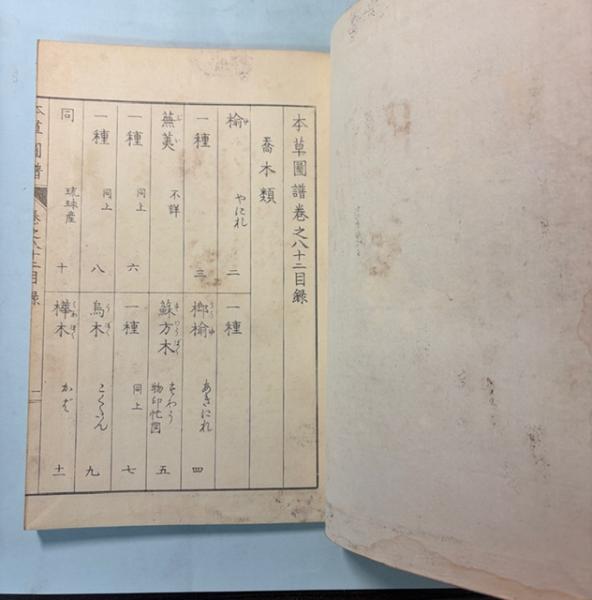 本草圖譜卷之八十二目録
喬木類
楡 やにれ 二 一種
一種 三 榔楡 あきにれ 四
蕪荑 不詳 蘇方木 すわう 物印忙図 五
一種 同上 六 一種 同上 七
一種 同上 八 烏木 うぼく こくたん 九
同 琉球産 十 樺木 くわぼく かば 十一
本草圖譜 卷之八十二目録